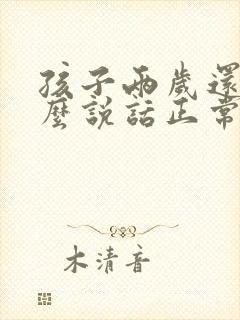 孩子兩歲還
麼說話正常
木清音